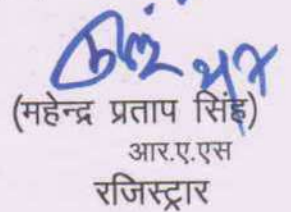 (महेन्द्र प्रताप सिंह)
आर.ए.एस
रजिस्ट्रार